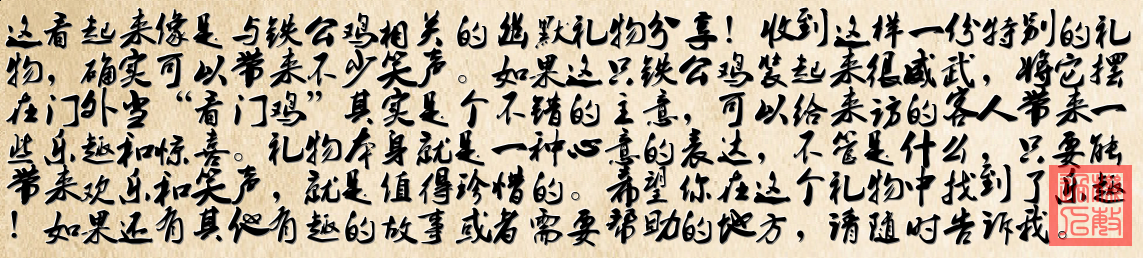 这看起来像是与铁公鸡相关的幽默礼物分享！收到这样一份特别的礼
物，确实可以带来不少笑声。如果这只铁公鸡装起来很威武，将它摆
在门外当“看门鸡”其实是个不错的主意，可以给来访的客人带来一
些乐趣和惊喜。礼物本身就是一种心意的表达，不管是什么，只要能
带来欢乐和笑声，就是值得珍惜的。希望你在这个礼物中找到了乐趣
！如果还有其他有趣的故事或者需要帮助的地方，请随时告诉我。